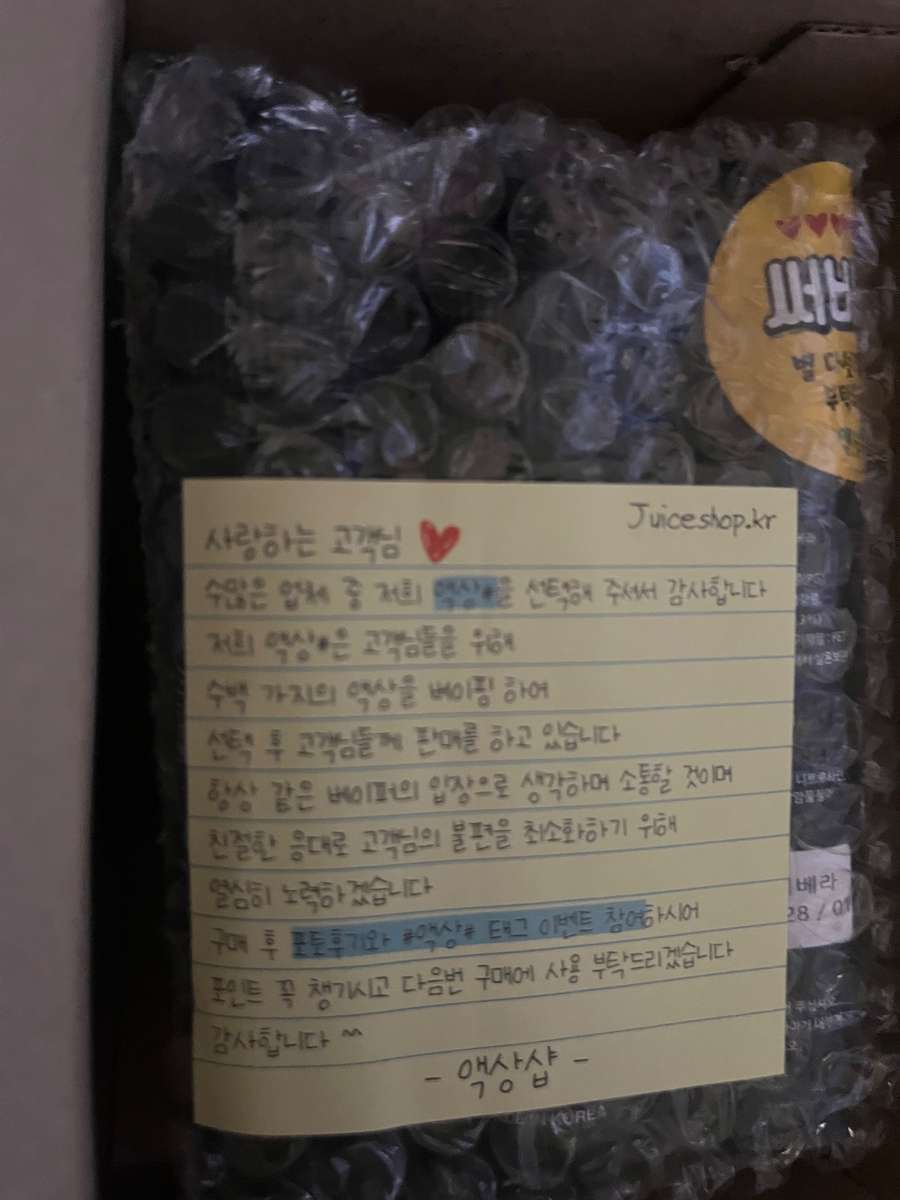 써비
별 다섯
Juiceshop.kr
사랑하는 고객님
수많은 업체 중 저희 액상#을 선택해 주셔서 감사합니다
저희 액상#은 고객님들을 위해
수백 가지의 액상을 베이핑 하여
선택 후 고객님들께 판매를 하고 있습니다
항상 같은 베이퍼의 입장으로 생각하며 소통할 것이며
친절한 응대로 고객님의 불편을 최소화하기 위해
열심히 노력하겠습니다
구매 후 포토후기와 #액상# 태그 이벤트 참여하시어
포인트 꼭 챙기시고 다음번 구매에 사용 부탁드리겠습니다
감사합니다 ^^
- 액상샵 -
베라
28 / 01
KOREA